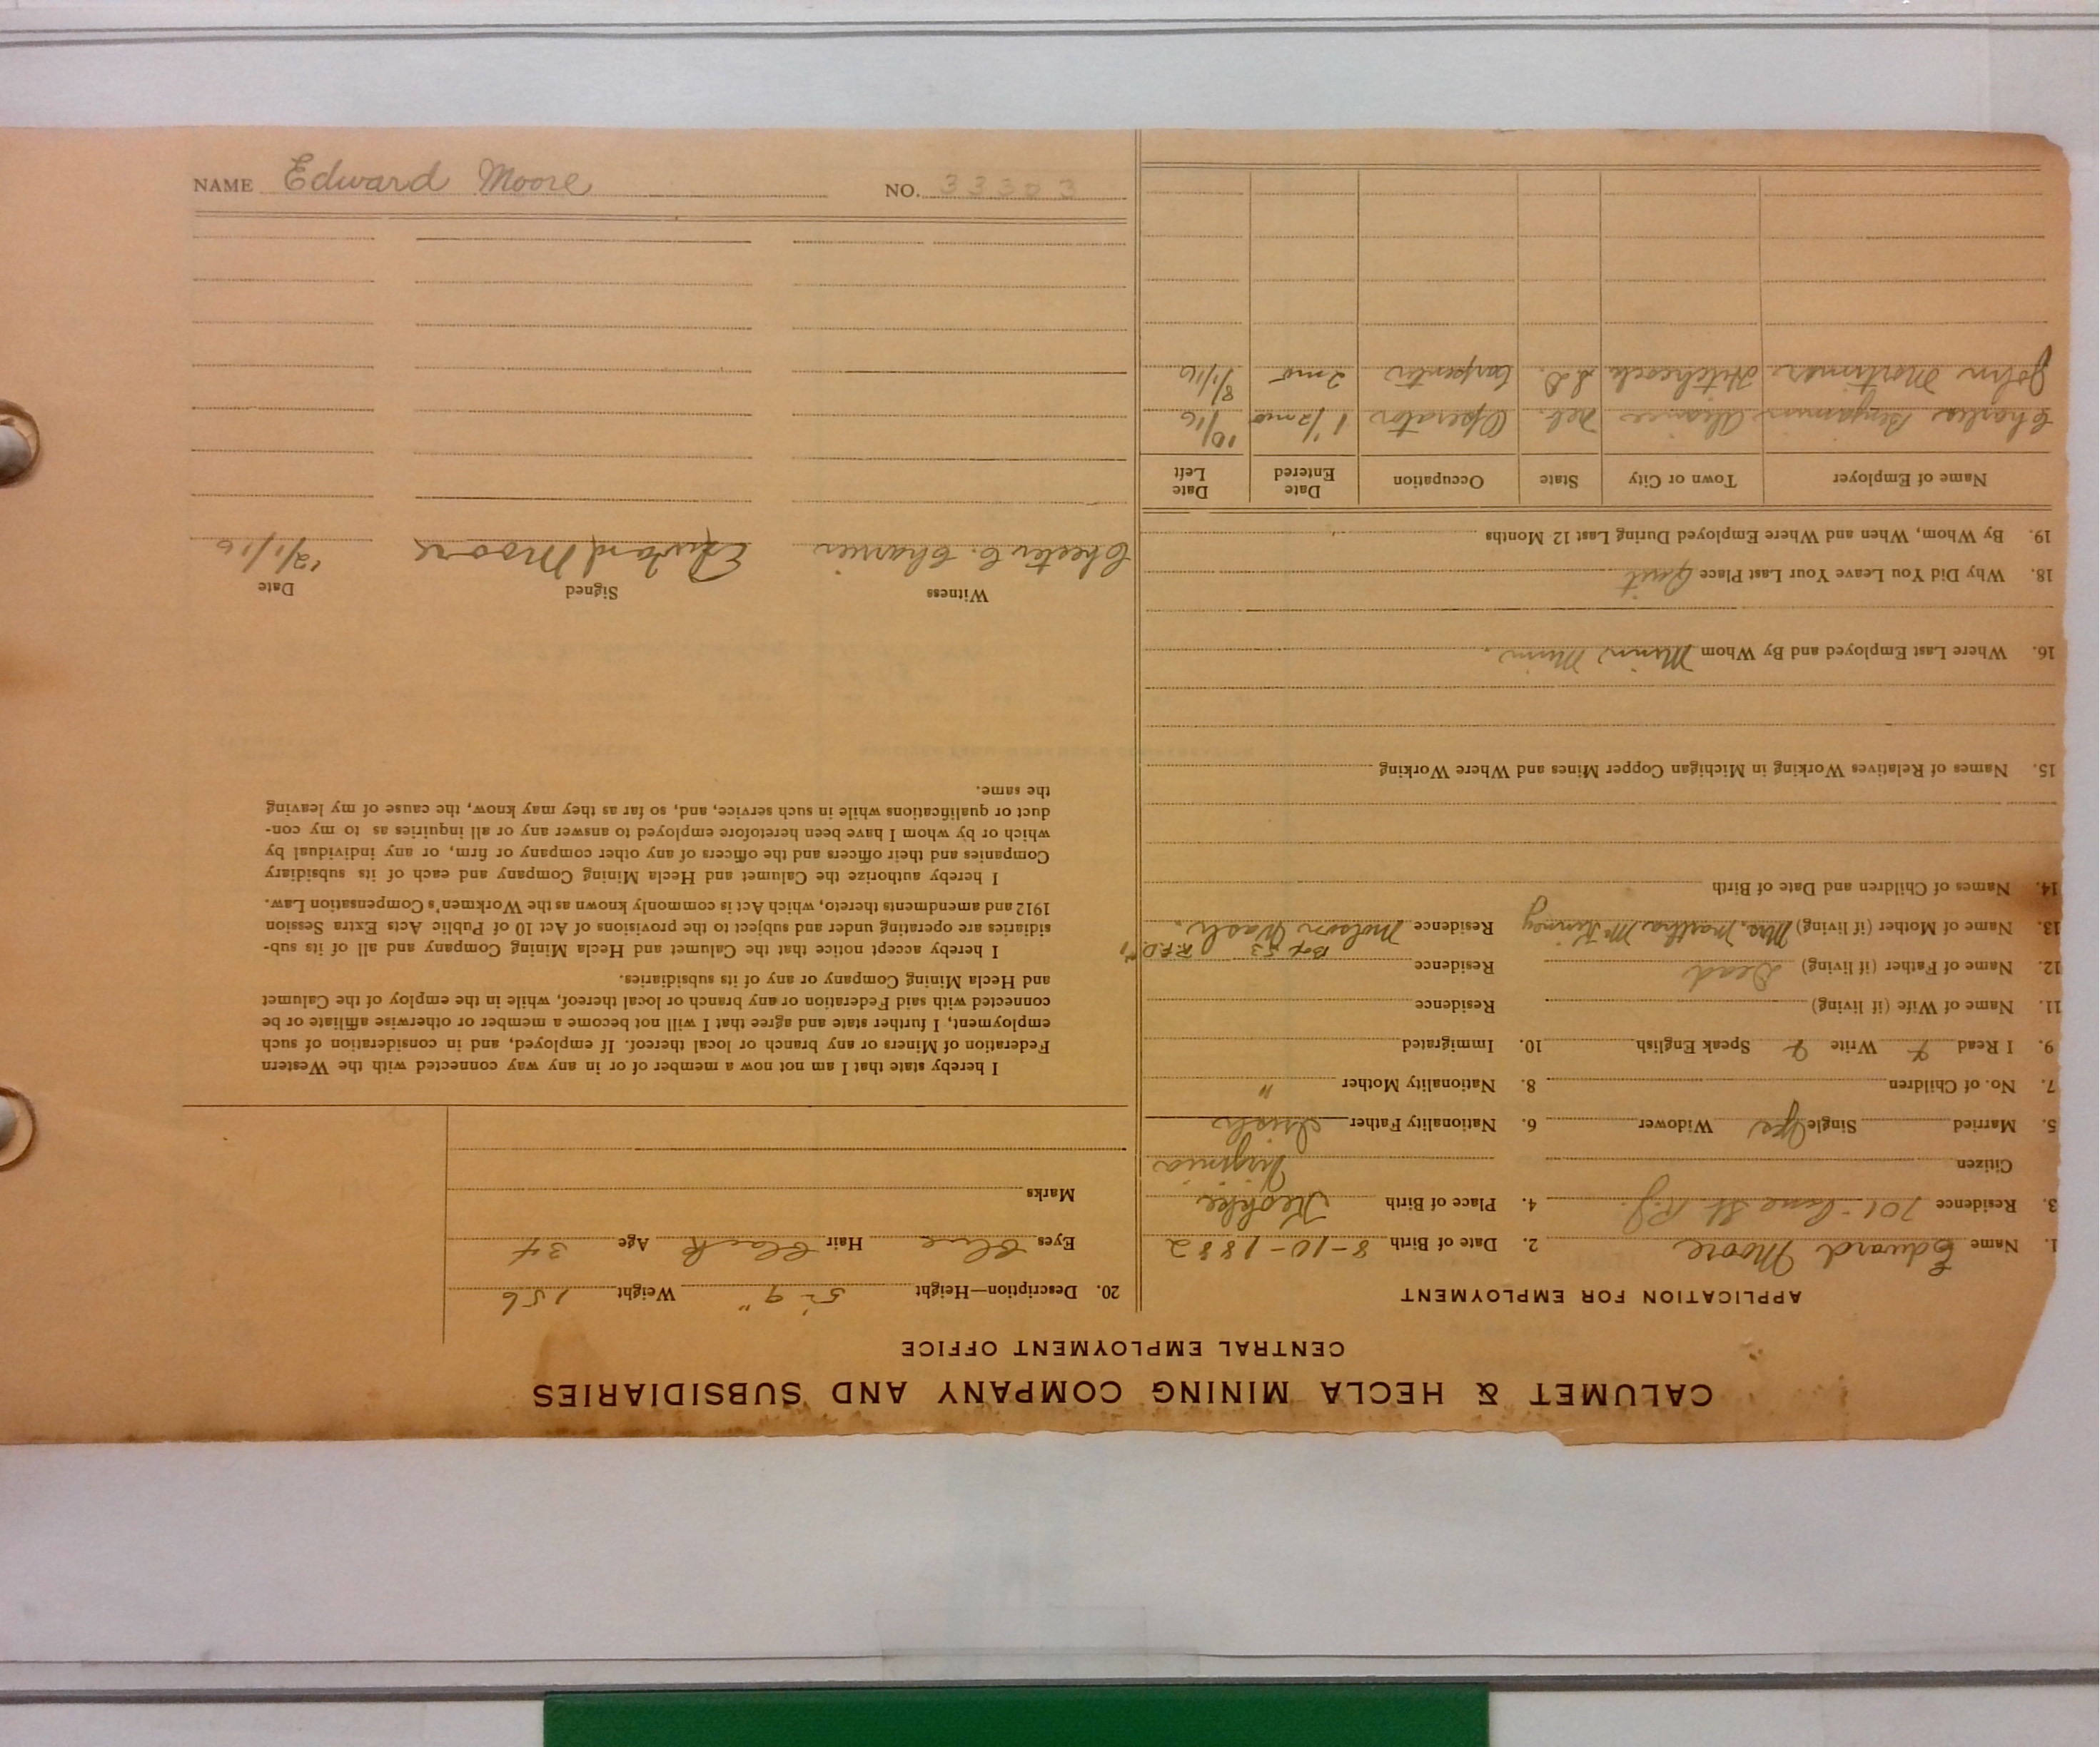 CALUMET & HECLA MINING COMPANY AND SUBSIDIARIES
CENTRAL EMPLOYMENT OFFICE
APPLICATION FOR EMPLOYMENT
1. Name Edward Moore 2. Date of Birth 8-10-1882
3. Residence 701- St. 4. Place of Birth
Citizen Virginia
5. Married Single Yes Widower 6. Nationality Father Irish
7. No. of Children 8. Nationality Mother "
9. I Read Write Speak English 10. Immigrated
11. Name of Wife (if living) Residence
12. Name of Father (if living) Dead Residence Box 53 R.F.D.
13. Name of Mother (if living) Mrs. Martha McKinney Residence Wash.
14. Names of Children and Date of Birth
15. Names of Relatives Working in Michigan Copper Mines and Where Working
16. Where Last Employed and By Whom Minn
18. Why Did You Leave Your Last Place Quit
19. By Whom, When and Where Employed During Last 12 Months
Name of Employer Town or City State Occupation Date Entered Date Left
Charles Benjamin Aliance Neb. Operator 1 1/2 mo 10/16
John Mortimer Hitchcock S.D. Carpenter 2 mo 8/1/16
20. Description—Height 5' 9" Weight 156
Eyes Blue Hair Black Age 34
Marks
I hereby state that I am not now a member of or in any way connected with the Western
Federation of Miners or any branch or local thereof. If employed, and in consideration of such
employment, I further state and agree that I will not become a member or otherwise affiliate or be
connected with said Federation or any branch or local thereof, while in the employ of the Calumet
and Hecla Mining Company or any of its subsidiaries.
I hereby accept notice that the Calumet and Hecla Mining Company and all of its sub-
sidiaries are operating under and subject to the provisions of Act 10 of Public Acts Extra Session
1912 and amendments thereto, which Act is commonly known as the Workmen's Compensation Law.
I hereby authorize the Calumet and Hecla Mining Company and each of its subsidiary
Companies and their officers and the officers of any other company or firm, or any individual by
which or by whom I have been heretofore employed to answer any or all inquiries as to my con-
duct or qualifications while in such service, and, so far as they may know, the cause of my leaving
the same.
Witness Signed Date
Chester C. Edward Moore 12/1/16
NAME Edward Moore NO. 33303